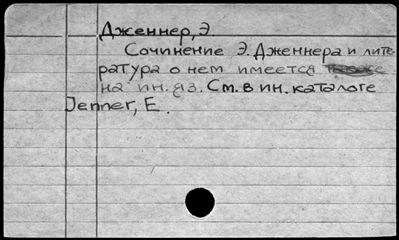 Дженнер, Э.
Сочинение Э. Дженнера и лите-
ратура о нем имеется
на ин. яз. См. в ин. каталоге
Jenner, E.